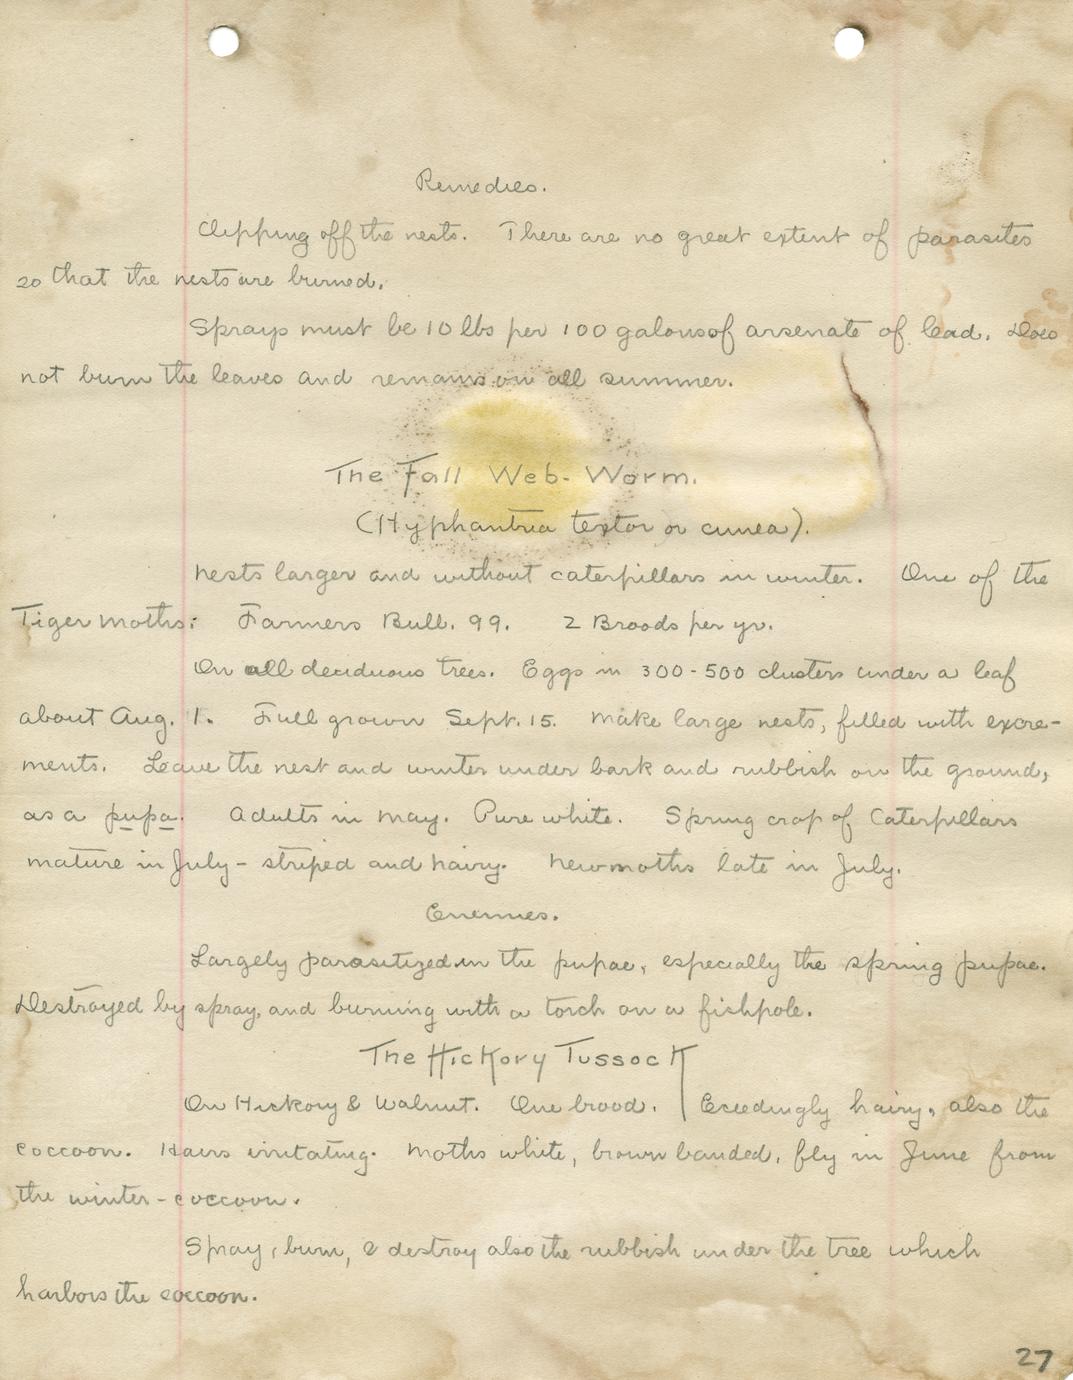 Remedies.
Clipping off the nests. There are no great extent of parasites
so that the nests are burned.
Sprays must be 10 lbs per 100 galons of arsenate of lead. Does
not burn the leaves and remains on all summer.
The Fall Web-Worm.
(Hyphantria textor or cunea).
Nests larger and without caterpillars in winter. One of the
Tiger Moths: Farmers Bull. 99. 2 Broods per yr.
On all deciduous trees. Eggs in 300-500 clusters under a leaf
about Aug. 1. Full grown Sept. 15. Make large nests, filled with excre-
ments. Leave the nest and winter under bark and rubbish on the ground,
as a pupa. Adults in May. Pure white. Spring crop of Caterpillars
mature in July - striped and hairy. New moths late in July.
Enemies.
Largely parasitized in the pupae, especially the spring pupae.
Destroyed by spray, and burning with a torch on a fishpole.
The Hickory Tussock
On Hickory & Walnut. One brood. Exceedingly hairy, also the
coccoon. Hairs irritating. Moths white, brown banded, fly in June from
the winter-coccoon.
Spray, burn, & destroy also the rubbish under the tree which
harbors the coccoon.
27